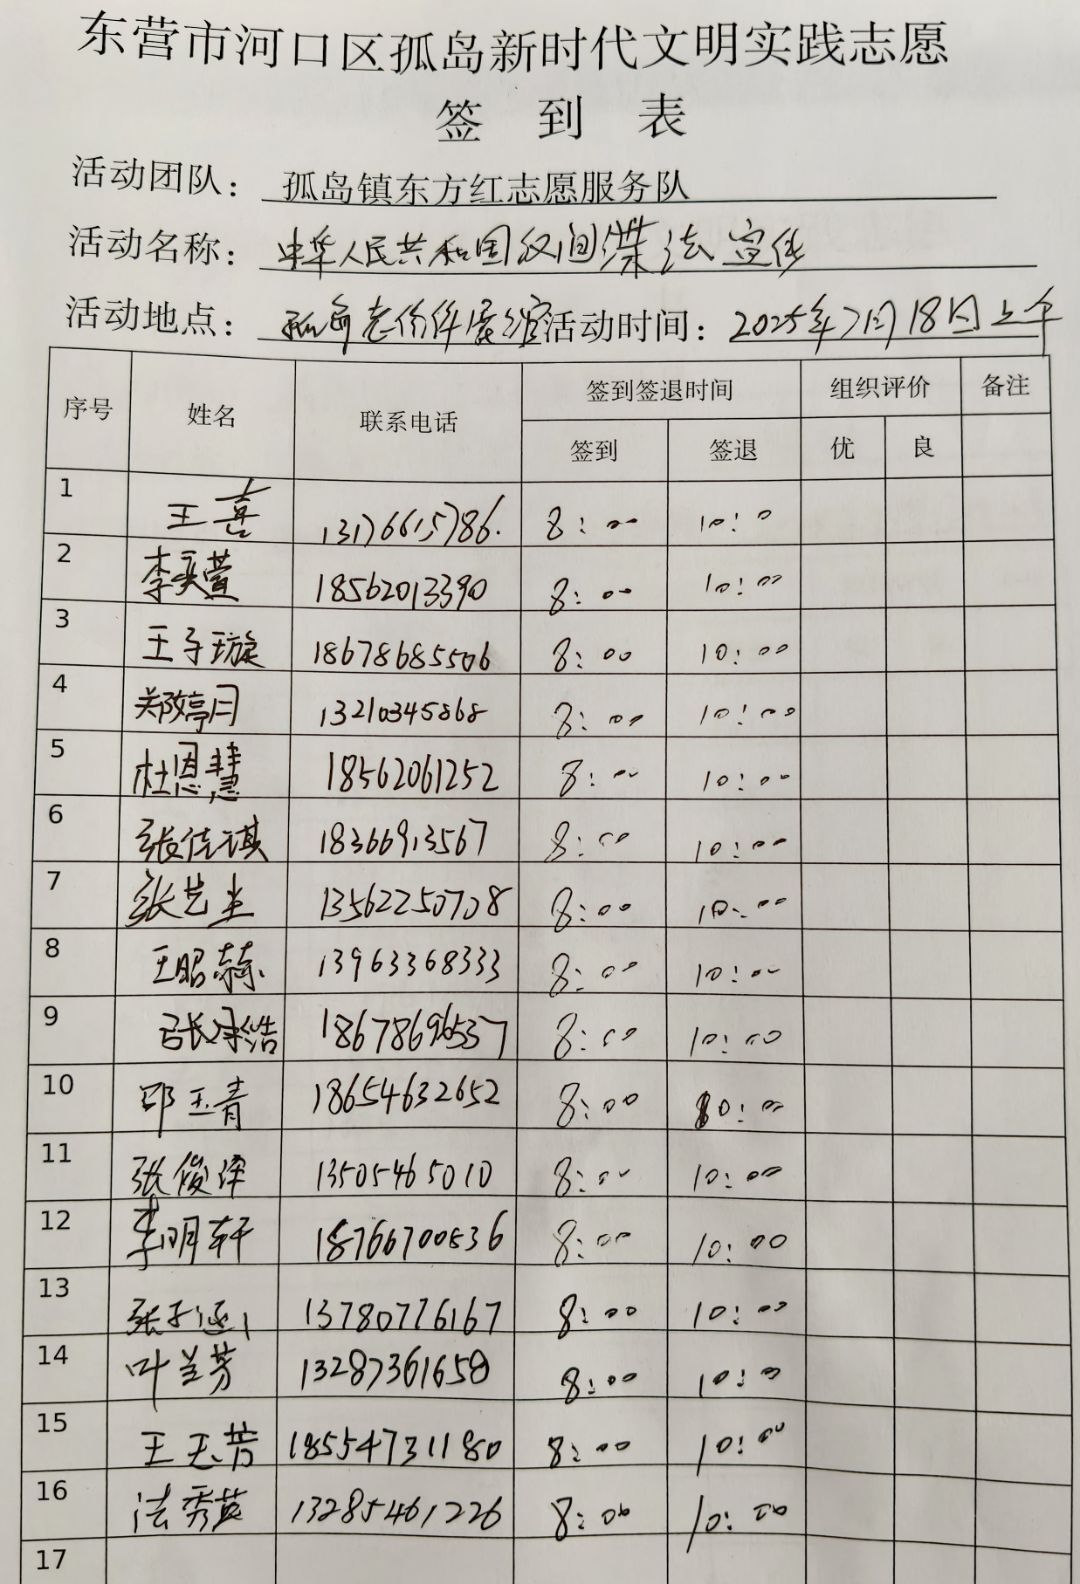 东营市河口区孤岛新时代文明实践志愿
签 到 表
活动团队：孤岛镇东方红志愿服务队
活动名称：中华人民共和国反间谍法宣传
活动地点：孤岛 活动时间：2025年7月18日上午
序号 姓名 联系电话 签到签退时间 组织评价 备注
签到 签退 优 良
1 王喜 13176615786. 8:00 10:0
2 李奕萱 18562013390 8:00 10:00
3 王子璇 18678685506 8:00 10:00
4 郑婷月 13210345868 8:00 10:00
5 杜恩慧 18562061252 8:00 10:00
6 张佳琪 18366913567 8:00 10:00
7 张艺 13562250708 8:00 10:00
8 王昭赫 13963368333 8:00 10:00
9 18678696537 8:00 10:00
10 邵玉青 18654632652 8:00 10:00
11 张俊泽 13505465010 8:00 10:00
12 李明轩 18766700836 8:00 10:00
13 张子涵 13780776167 8:00 10:00
14 叶兰芳 13287361658 8:00 10:0
15 王玉芳 18554731180 8:00 10:00
16 法秀英 13285461226 8:00 10:00
17